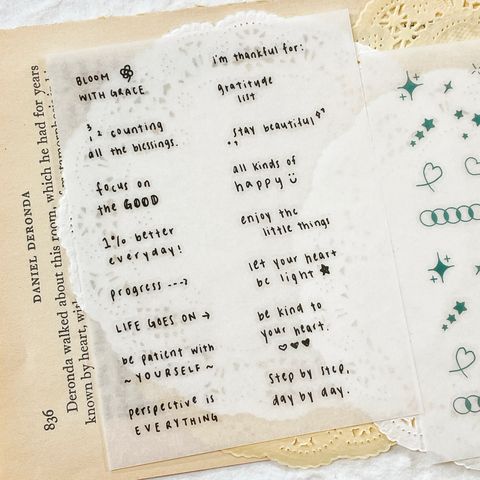 BLOOM
WITH GRACE
3
1 2 counting
all the blessings.
focus on
the GOOD
1% better
everyday!
progress --->
LIFE GOES ON →
be patient with
~ YOURSELF ~
perspective is
EVERYTHING
i'm thankful for:
gratitude
list
stay beautiful
all kinds of
happy
enjoy the
little things
let your heart
be light
be kind to
your heart.
step by step,
day by day.
836
DANIEL DERONDA
Deronda walked about this room, which he had for years
known by heart,